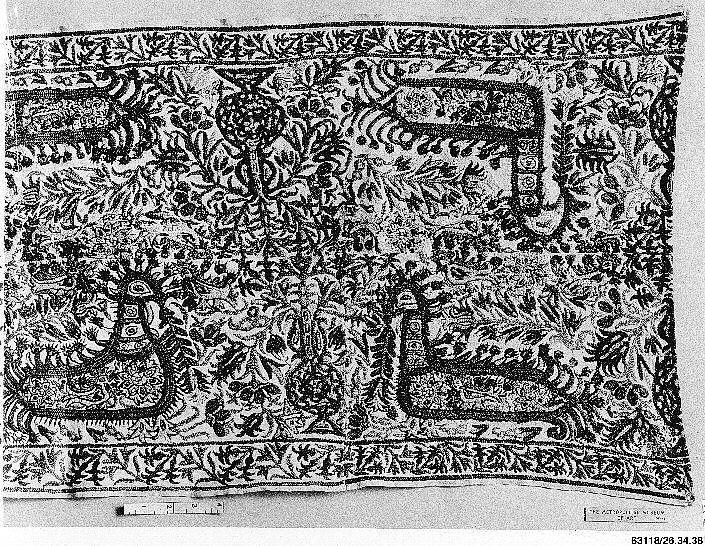 THE METROPOLITAN MUSEUM
OF ART
63118/26.34.38